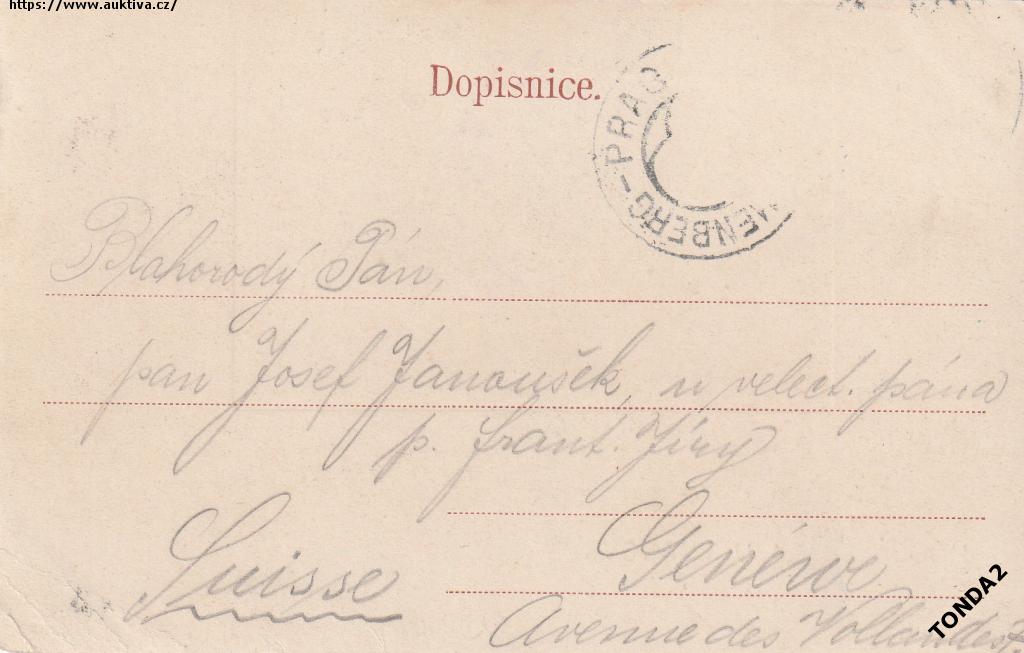 https://www.auktiva.cz/
Dopisnice.
ENBERG - PRAG
Blahorodý Pán,
pan Josef Janoušek, u velect. pána
p. Frant. Jíry
Genéve
Suisse
Avenue des
TONDA2